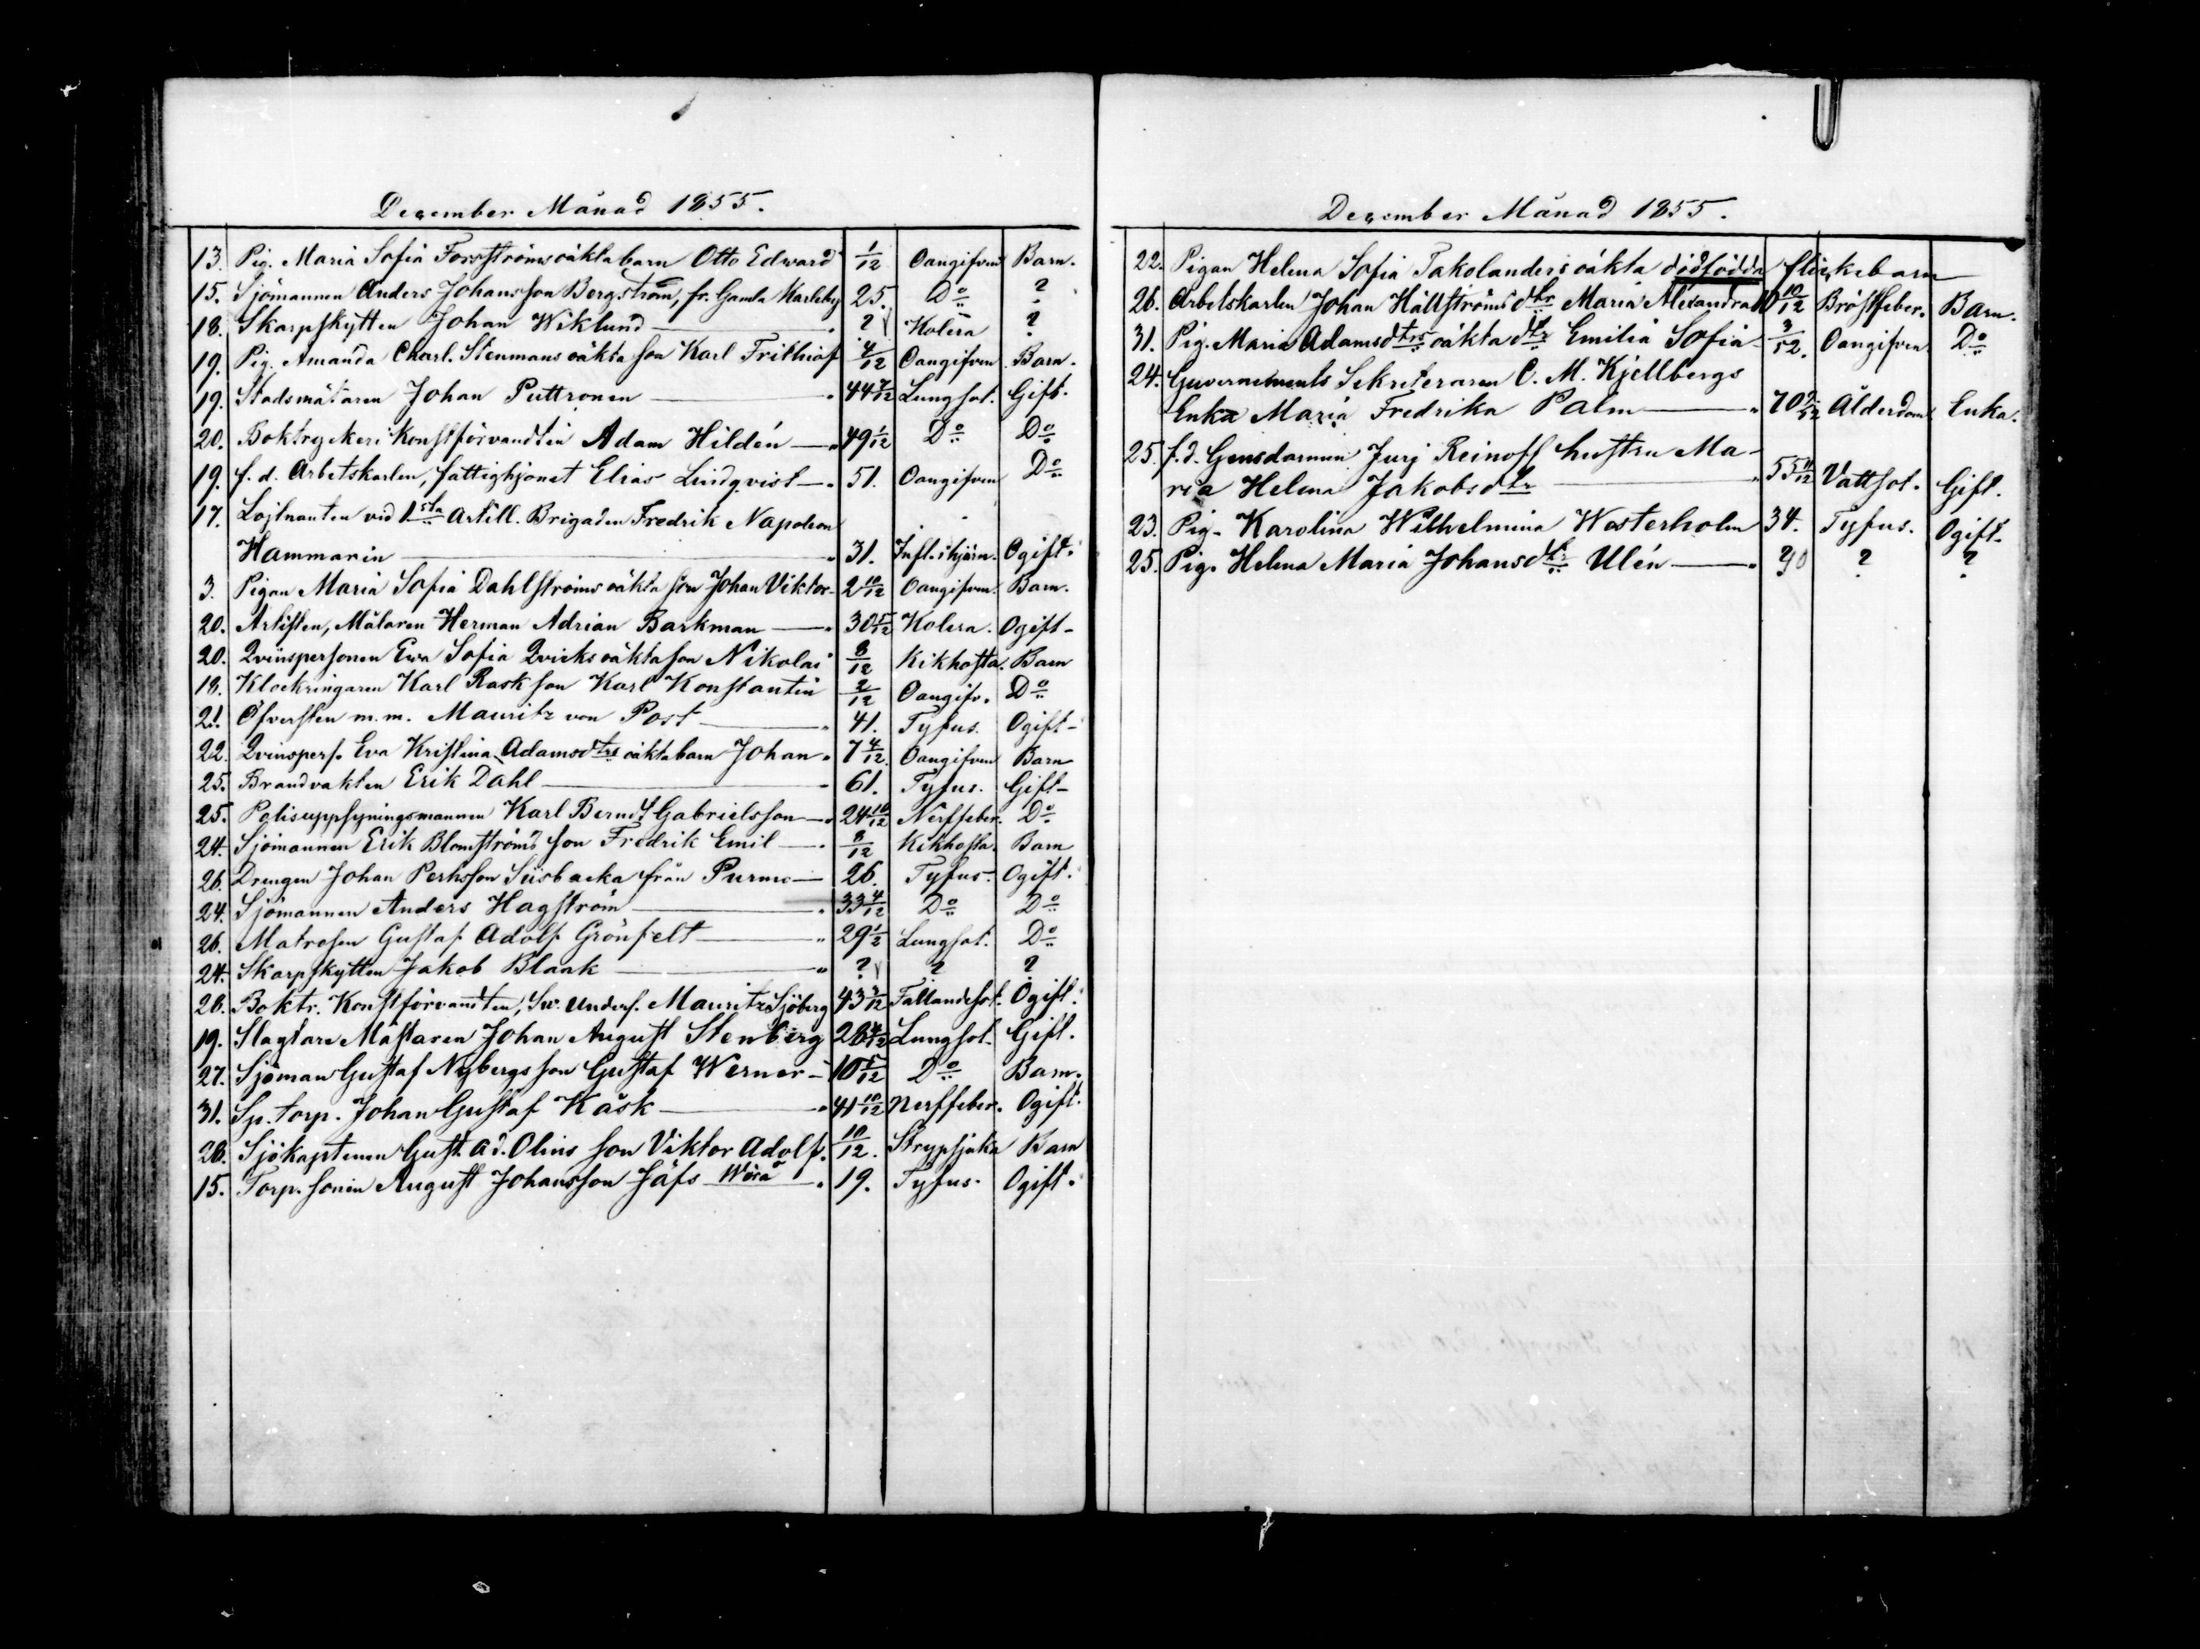 December Månad 1855.
13. Pig. Maria Sofia Forsströms oäkta barn Otto Edward 1/12 Oangifven Barn.
15. Sjömannen Anders Johansson Bergström, fr. Gamla Karleby 25. Do ?
18. Skarpskytten Johan Wiklund — ? Kolera ?
19. Pig. Amanda Charl. Stenmans oäkta son Karl Frithiof 4/12 Oangifven Barn.
19. Stadsmätaren Johan Puttronen — 44 7/12 Lungsot. Gift.
20. Boktryckeri Konstförvandtin Adam Hildén — 49 1/12 Do Do
19. f. d. Arbetskarlen, fattighjonet Elias Lindqvist — 51. Oangifven Do
17. Löjtnanten vid 1sta Artill. Brigaden Fredrik Napoleon
Hammarin — 31. Infl. i hjärn. Ogift.
3. Pigan Maria Sofia Dahlströms oäkta son Johan Viktor - 2 10/12 Oangifven. Barn.
20. Artisten, Målaren Herman Adrian Barkman — 30 5/12 Kolera. Ogift -
20. Qvinspersonen Ewa Sofia Qvicks oäkta son Nikolai 8/12 Kikhosta. Barn
18. Klockringaren Karl Rask son Karl Konstantin 2/12 Oangifv. Do
21. Öfversten m.m. Mauritz von Post — 41. Tyfus. Ogift -
22. Qvinspers. Eva Kristina Adamsdtrs oäkta barn Johan 7 4/12. Oangifven Barn
25. Brandvakten Erik Dahl — 61. Tyfus. Gift -
25. Polisuppsyningsmannen Karl Bernd Gabrielsson — 24 10/12 Nerffeber. Do
24. Sjömannen Erik Blomströms son Fredrik Emil — 8/12 Kikhosta. Barn
26. Drengen Johan Perhsson Siisbacka från Purmo — 26. Tyfus. Ogift.
24. Sjömannen Anders Hagström — 33 4/12 Do Do
26. Matrosen Gustaf Adolf Grönfelt — 29 1/2 Lungsot. Do
24. Skarpskytten Jakob Blank — ? ? ?
28. Boktr. Konstförvandten, Sv. Unders. Mauritz Sjöberg 43 3/12 Fallandesot. Ogift.
19. Slagtare Mästaren Johan August Stenberg 28 4/12 Lungsot. Gift.
27. Sjöman Gustaf Nybergs son Gustaf Werner - 10 5/12 Do Barn.
31. Sp. torp. Johan Gustaf Kåsk — 41 10/12 Nerffeber. Ogift.
28. Sjökaptenen Gust. Ad. Olins son Viktor Adolf. 10/12. Strypsjuka Barn
15. Torp. sonen August Johansson Jäfs Wörå 19. Tyfus. Ogift.
December Månad 1855.
22. Pigan Helena Sofia Takolanders oäkta dödfödda flickebarn
26. Arbetskarlen Johan Hällströms dtr Maria Alexandra 10 10/12 Bröstfeber. Barn.
31. Pig. Maria Adamsdtrs oäkta dtr Emilia Sofia - 3/52. Oangifven. Do
24. Guvernements Sekreteraren C. M. Kjellbergs
Enka Maria Fredrika Palm — 70 Ålderdom Enka.
25. f. d. Gensdarmen Jurj Reinoff hustru Ma-
ria Helena Jakobsdtr — 55 11/12 Vattsot. Gift.
23. Pig. Karolina Wilhelmina Westerholm 34. Tyfus. Ogift.
25. Pig. Helena Maria Johansdtr Ulén — ? ?